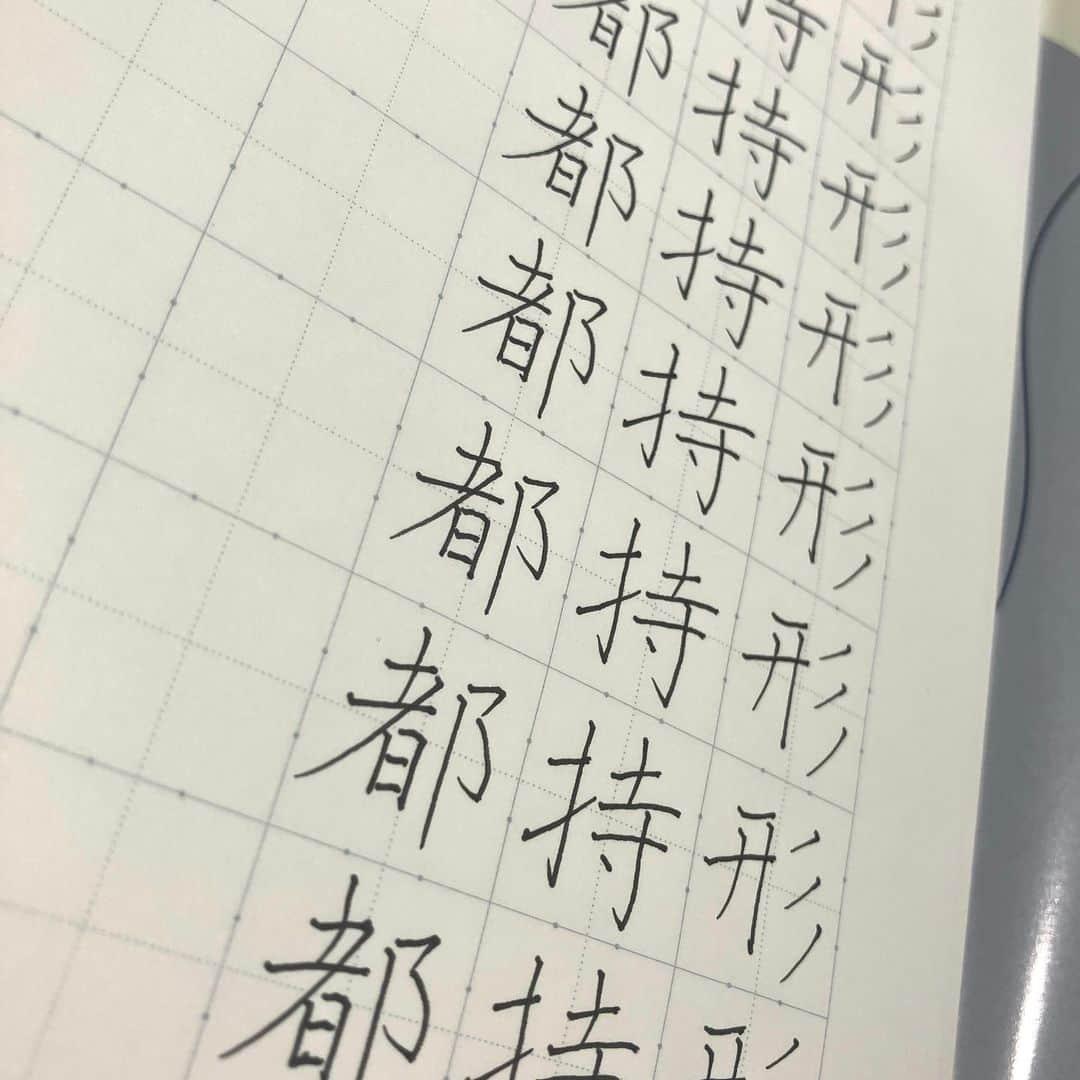 形形形形形形形形
持持持持持持持
都都都都都都